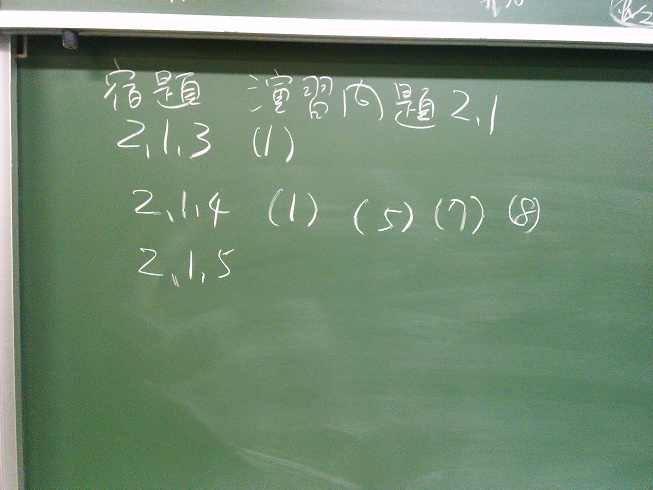 宿題 演習内題 2,1
2,1,3 (1)
2,1,4 (1) (5) (7) (8)
2,1,5